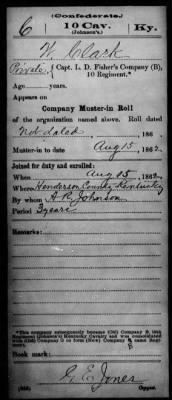 (Confederate.)
6 10 Cav. Ky.
(Johnson's.)
W. Clark
Private, Capt. L. D. Fisher's Company (B),
10 Regiment.*
Age years.
Appears on
Company Muster-in Roll
of the organization named above. Roll dated
Not dated, 186 .
Muster-in to date Aug 15, 1862.
Joined for duty and enrolled:
When Aug 15, 1862
Where Henderson County, Kentucky
By whom A R Johnson
Period 3 years
Remarks:
*This company subsequently became (Old) Company B, 10th
Regiment (Johnson's) Kentucky Cavalry and was consolidated
with (Old) Company to form (New) Company B same Regi-
ment.
Book mark:
G. E. Jones
Copyist.